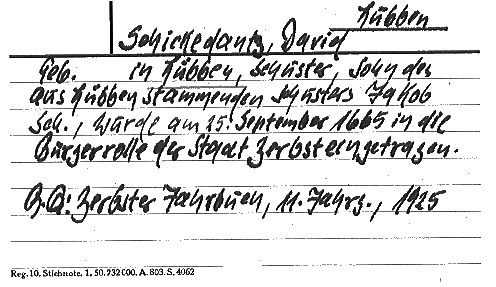 Lübben
Schickedantz, David
Geb. in Lübben, Schuster, Sohn des
aus Lübben stammenden Schusters Jakob
Sch., wurde am 25. September 1665 in die
Bürgerrolle der Stadt Zerbst eingetragen.
Q.Q: Zerbster Jahrbuch, 11. Jahrg., 1925
Reg. 10. Stichnote. 1. 50. 732 000. A. 803. S. 4062